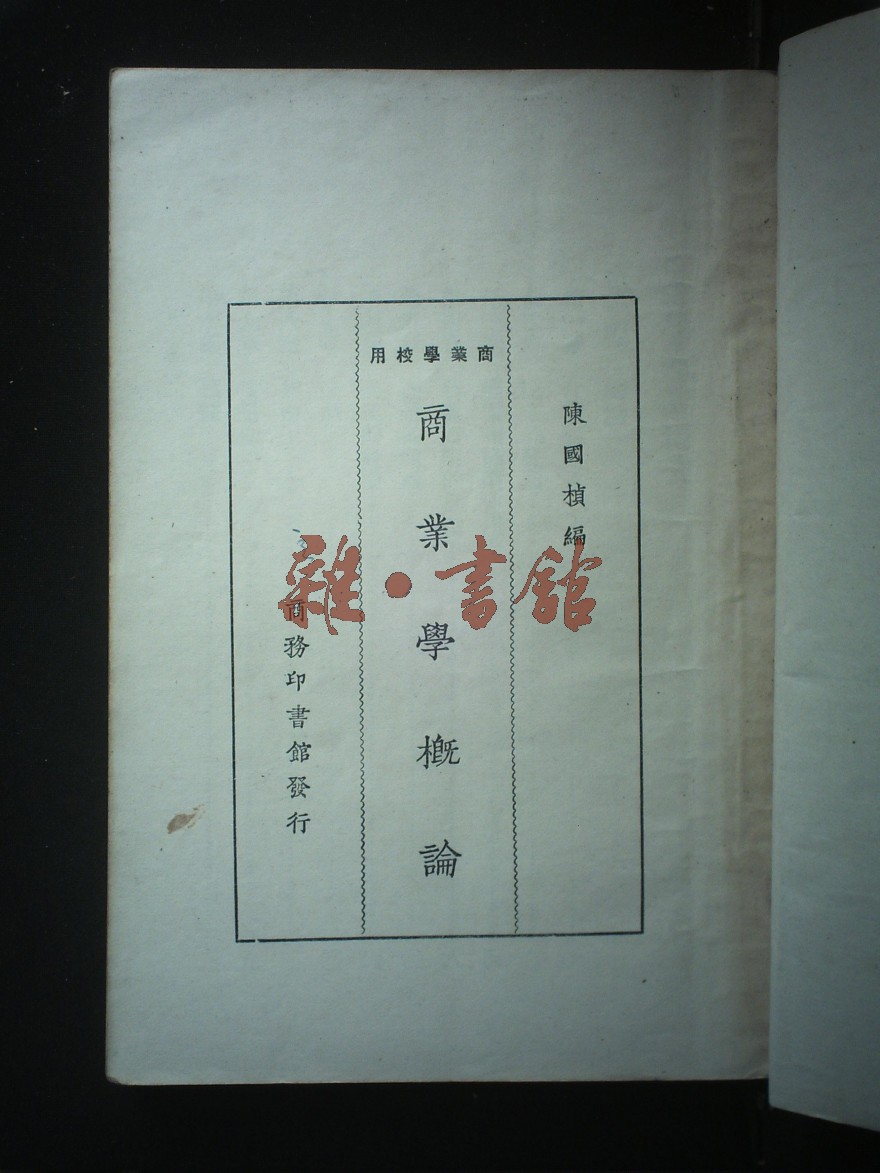 陳國楨編
商業學校用
商業學概論
商務印書館發行
雜·書館